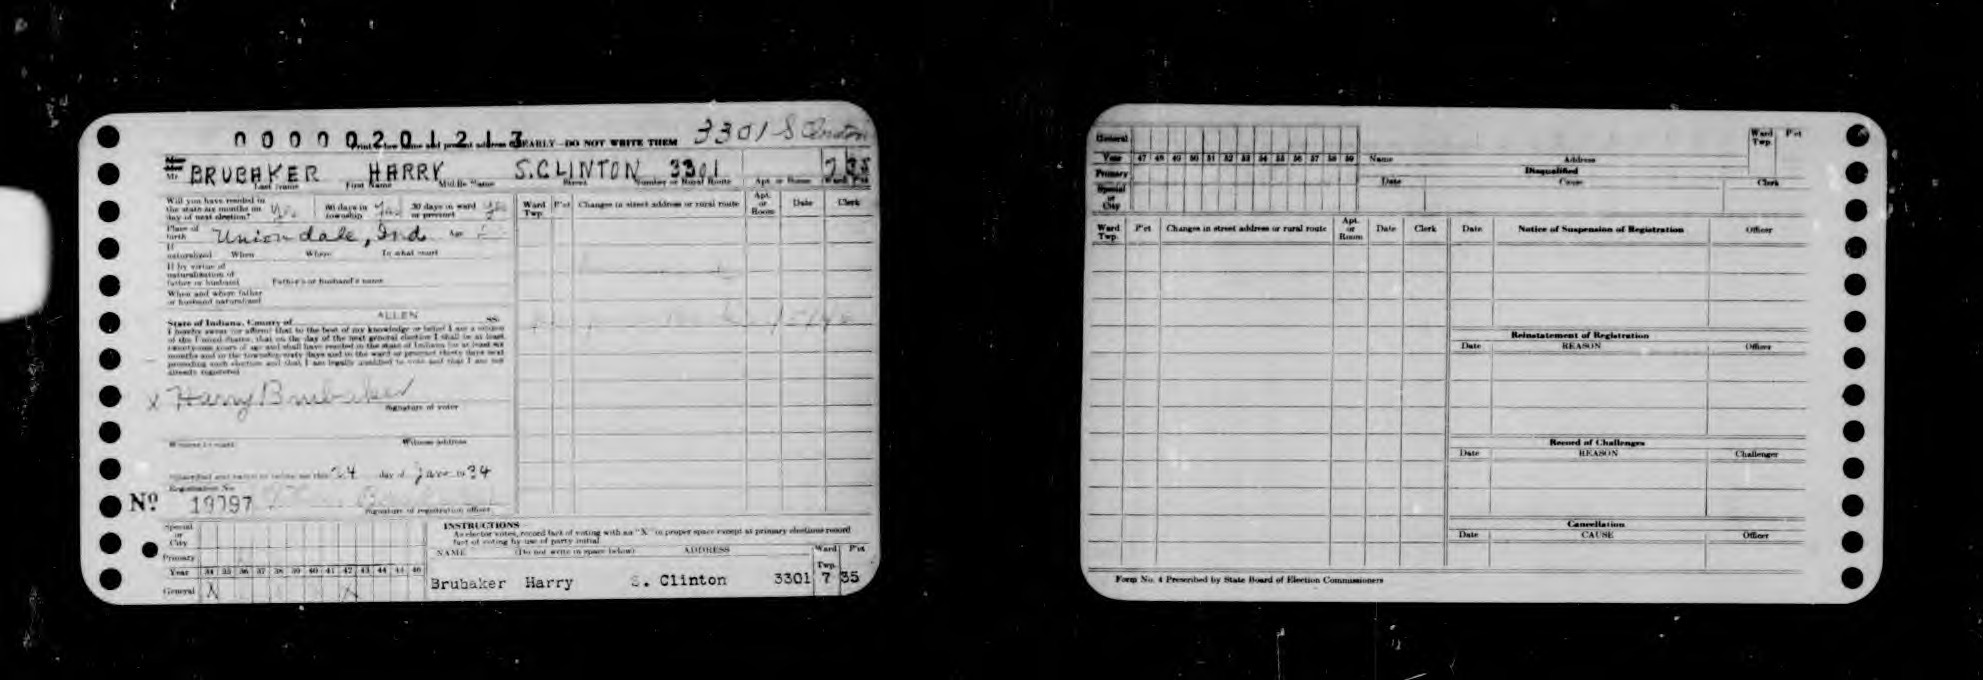 0 0 0 0 0 2 0 1 2 1 3
EARLY—DO NOT WRITE THEM 3301 S Clinton
BRUBAKER HARRY S.CLINTON 3301 7 35
Last Name First Name Middle Name Street Number or Rural Route Apt. or Room Ward P'ct
Will you have resided in
the state six months on
day of next election? Yes 60 days in township Yes 30 days in ward or precinct Yes
Ward Twp. P'ct Changes in street address or rural route Apt. or Room Date Clerk
Place of birth Uniondale, Ind. Age
If naturalized When Where In what court
If by virtue of
naturalization of
father or husband Father's or husband's name
When and where father
or husband naturalized
State of Indiana, County of ALLEN ss.
I hereby swear (or affirm) that to the best of my knowledge or belief I am a citizen
of the United States, that on the day of the next general election I shall be at least
twenty-one years of age and shall have resided in the state of Indiana for at least six
months and in the township sixty days and in the ward or precinct thirty days next
preceding such election and that I am legally qualified to vote and that I am not
already registered
x Harry Brubaker
Signature of voter
Witness address
Subscribed and sworn to before me this 24 day of Jan 19 34
Registration No.
No 19797
Signature of registration officer
Special or City
Primary
Year 34 35 36 37 38 39 40 41 42 43 44 45 46
General X X
INSTRUCTIONS
As elector votes, record fact of voting with an "X" in proper space except at primary elections record
fact of voting by use of party initial
NAME (Do not write in space below) ADDRESS Ward Twp. P'ct
Brubaker Harry S. Clinton 3301 7 35
General
Year 47 48 49 50 51 52 53 54 55 56 57 58 59
Primary
Special or City
Name Address Ward Twp. P'ct
Disqualified
Date Cause Clerk
Ward Twp. P'ct Changes in street address or rural route Apt. or Room Date Clerk
Date Notice of Suspension of Registration Officer
Reinstatement of Registration
Date REASON Officer
Record of Challenges
Date REASON Challenger
Cancellation
Date CAUSE Officer
Form No. 4 Prescribed by State Board of Election Commissioners